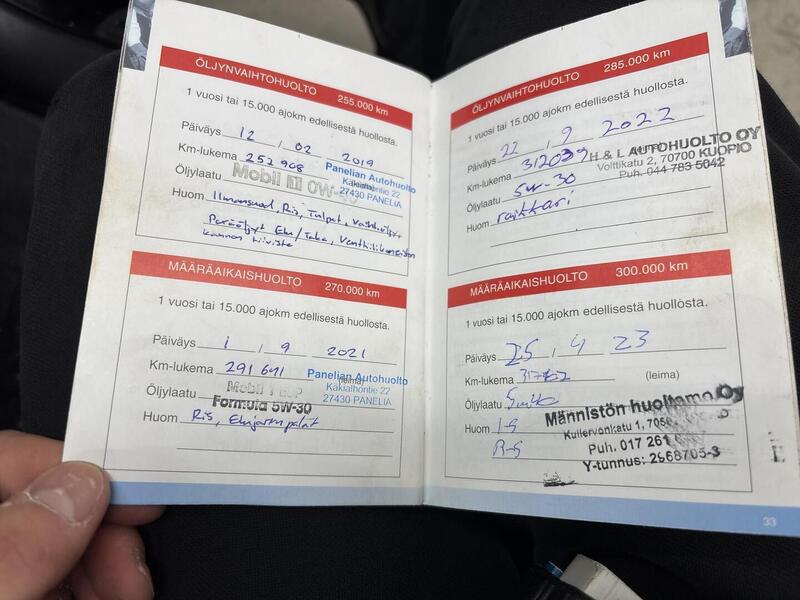 ÖLJYNVAIHTOHUOLTO 255.000 km
1 vuosi tai 15.000 ajokm edellisestä huollosta.
Päiväys 12 / 02 2019
Km-lukema 252 908 (leima)
Panelian Autohuolto
Käkialhontie 22
27430 PANELIA
Öljylaatu Mobil 1 0W-40
Huom Ilmansuod, Ris, Tulpat, Vaihdeöljyt,
Peräöljyt Etu/Taka, Venttiilikoneiston
kannen tiiviste
MÄÄRÄAIKAISHUOLTO 270.000 km
1 vuosi tai 15.000 ajokm edellisestä huollosta.
Päiväys 1 / 9 2021
Km-lukema 291 641 (leima)
Panelian Autohuolto
Käkialhontie 22
27430 PANELIA
Öljylaatu Mobil 1 ESP
Formula 5W-30
Huom Ris, Etujarrupalat
ÖLJYNVAIHTOHUOLTO 285.000 km
1 vuosi tai 15.000 ajokm edellisestä huollosta.
Päiväys 22 / 9 2022
Km-lukema 312039
H & L AUTOHUOLTO OY
Volttikatu 2, 70700 KUOPIO
Puh. 044 783 5042
Öljylaatu 5w-30
Huom raikkari
MÄÄRÄAIKAISHUOLTO 300.000 km
1 vuosi tai 15.000 ajokm edellisestä huollosta.
Päiväys 25 / 4 23
Km-lukema (leima)
Öljylaatu
Männistön huoltamo Oy
Kullervonkatu 1,
Puh. 017 261
Y-tunnus: 2968705-3
Huom
33